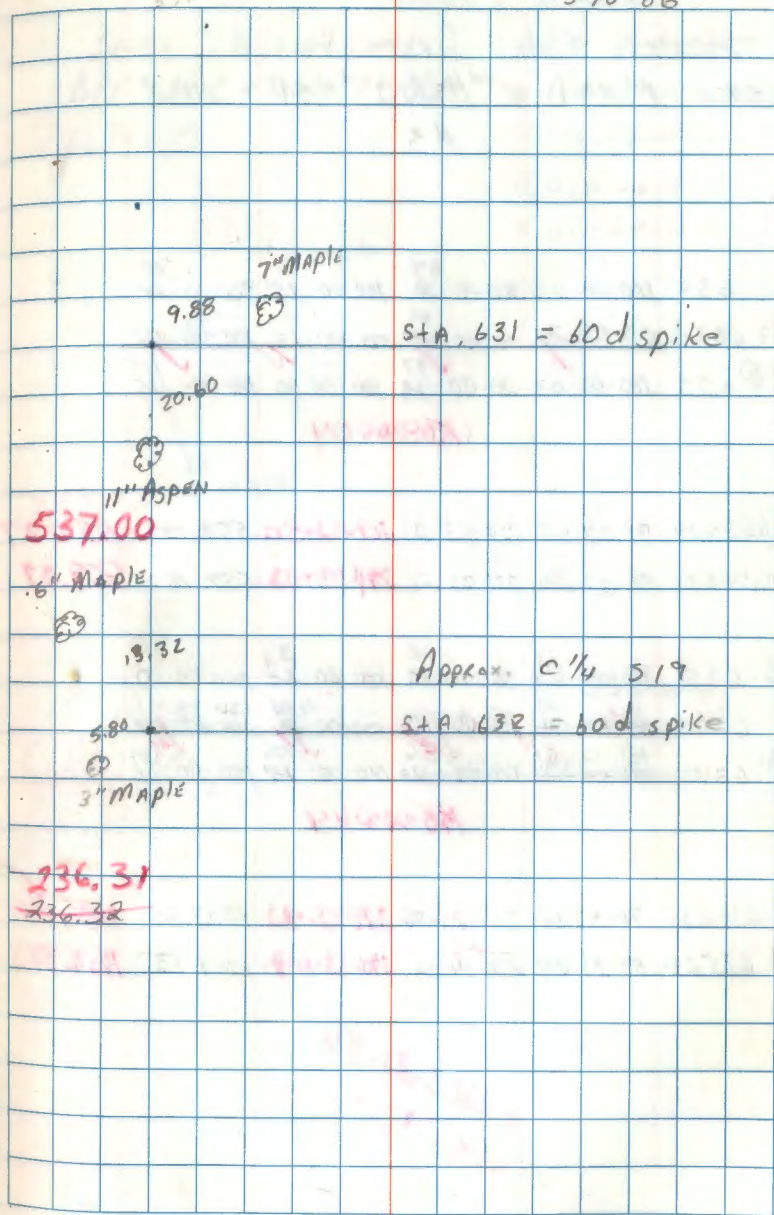 7" MAPLE
9.88
StA. 631 = 60 d spike
20.60
11" ASPEN
537.00
6" MAPLE
Approx. C 1/4 S19
5.80
StA 632 = 60 d spike
3" MAPLE
236.31
236.32